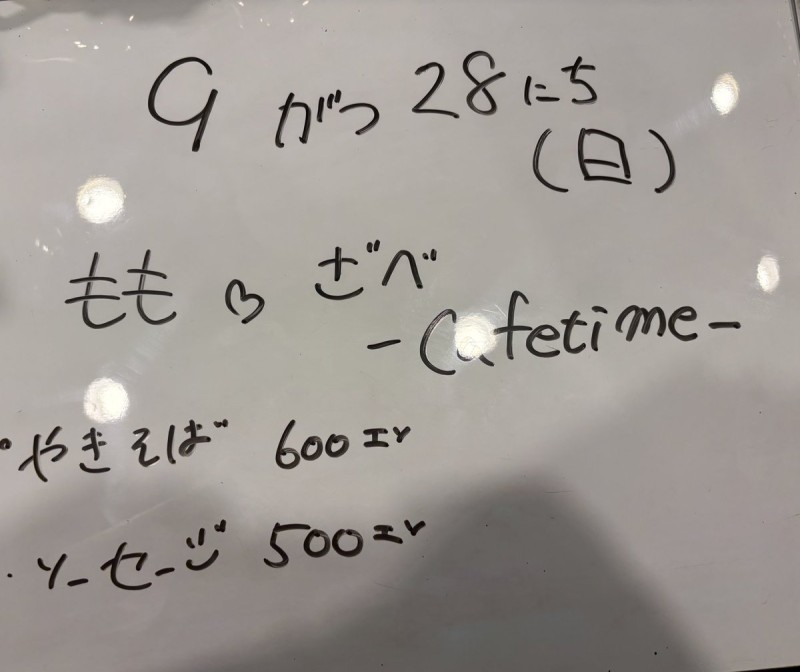 9がつ28にち
(日)
もも♡ざべ
-Cafetime-
・やきそば 600エン
・ソーセージ 500エン